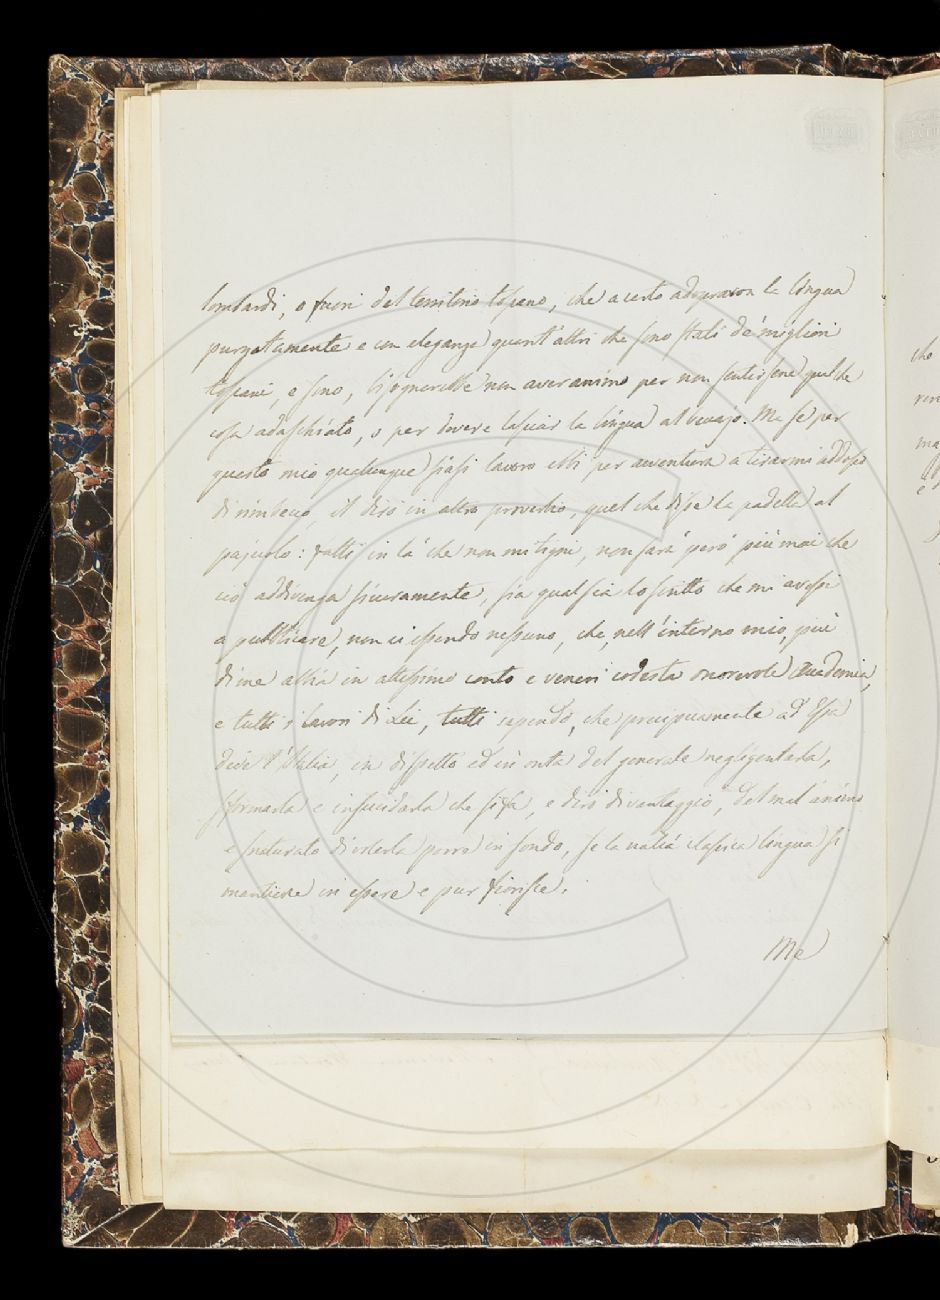 lombardi, o fuori del territorio toscano, che a certo adopraron la lingua
purgatamente e con eleganza quant'altri che sono stati de' migliori
toscani, e sono, bisognerebbe non aver animo per non sentirsene qualche
cosa adaschiato, o per dovere lasciar la lingua al beccajo. Ma se per
questo mio qualunque siasi lavoro ebbi per avventura a tirarmi addosso
di rimbecco, il dirò in altro proverbio, quel che disse la padella al
pajuolo: fatti in là che non mi tigni, non sarà però più mai che
ciò addivenga sicuramente, sia qualsia lo scritto che mi avessi
a pubblicare, non ci essendo nessuno, che, nell'interno mio, più
di me abbia in altissimo conto e veneri codesta onorevole Accademia,
e tutti i lavori di Lei, tutti sapendo, che precipuamente ad Essa
deve l'Italia, in dispetto ed in onta del generale neglegentarla,
sformarla e insucidarla che si fa, e dirò di vantaggio, del mal animo
e snaturato di volerla porre in fondo, se la natia classica lingua si
mantiene in essere e pur fiorisce.
Me
che